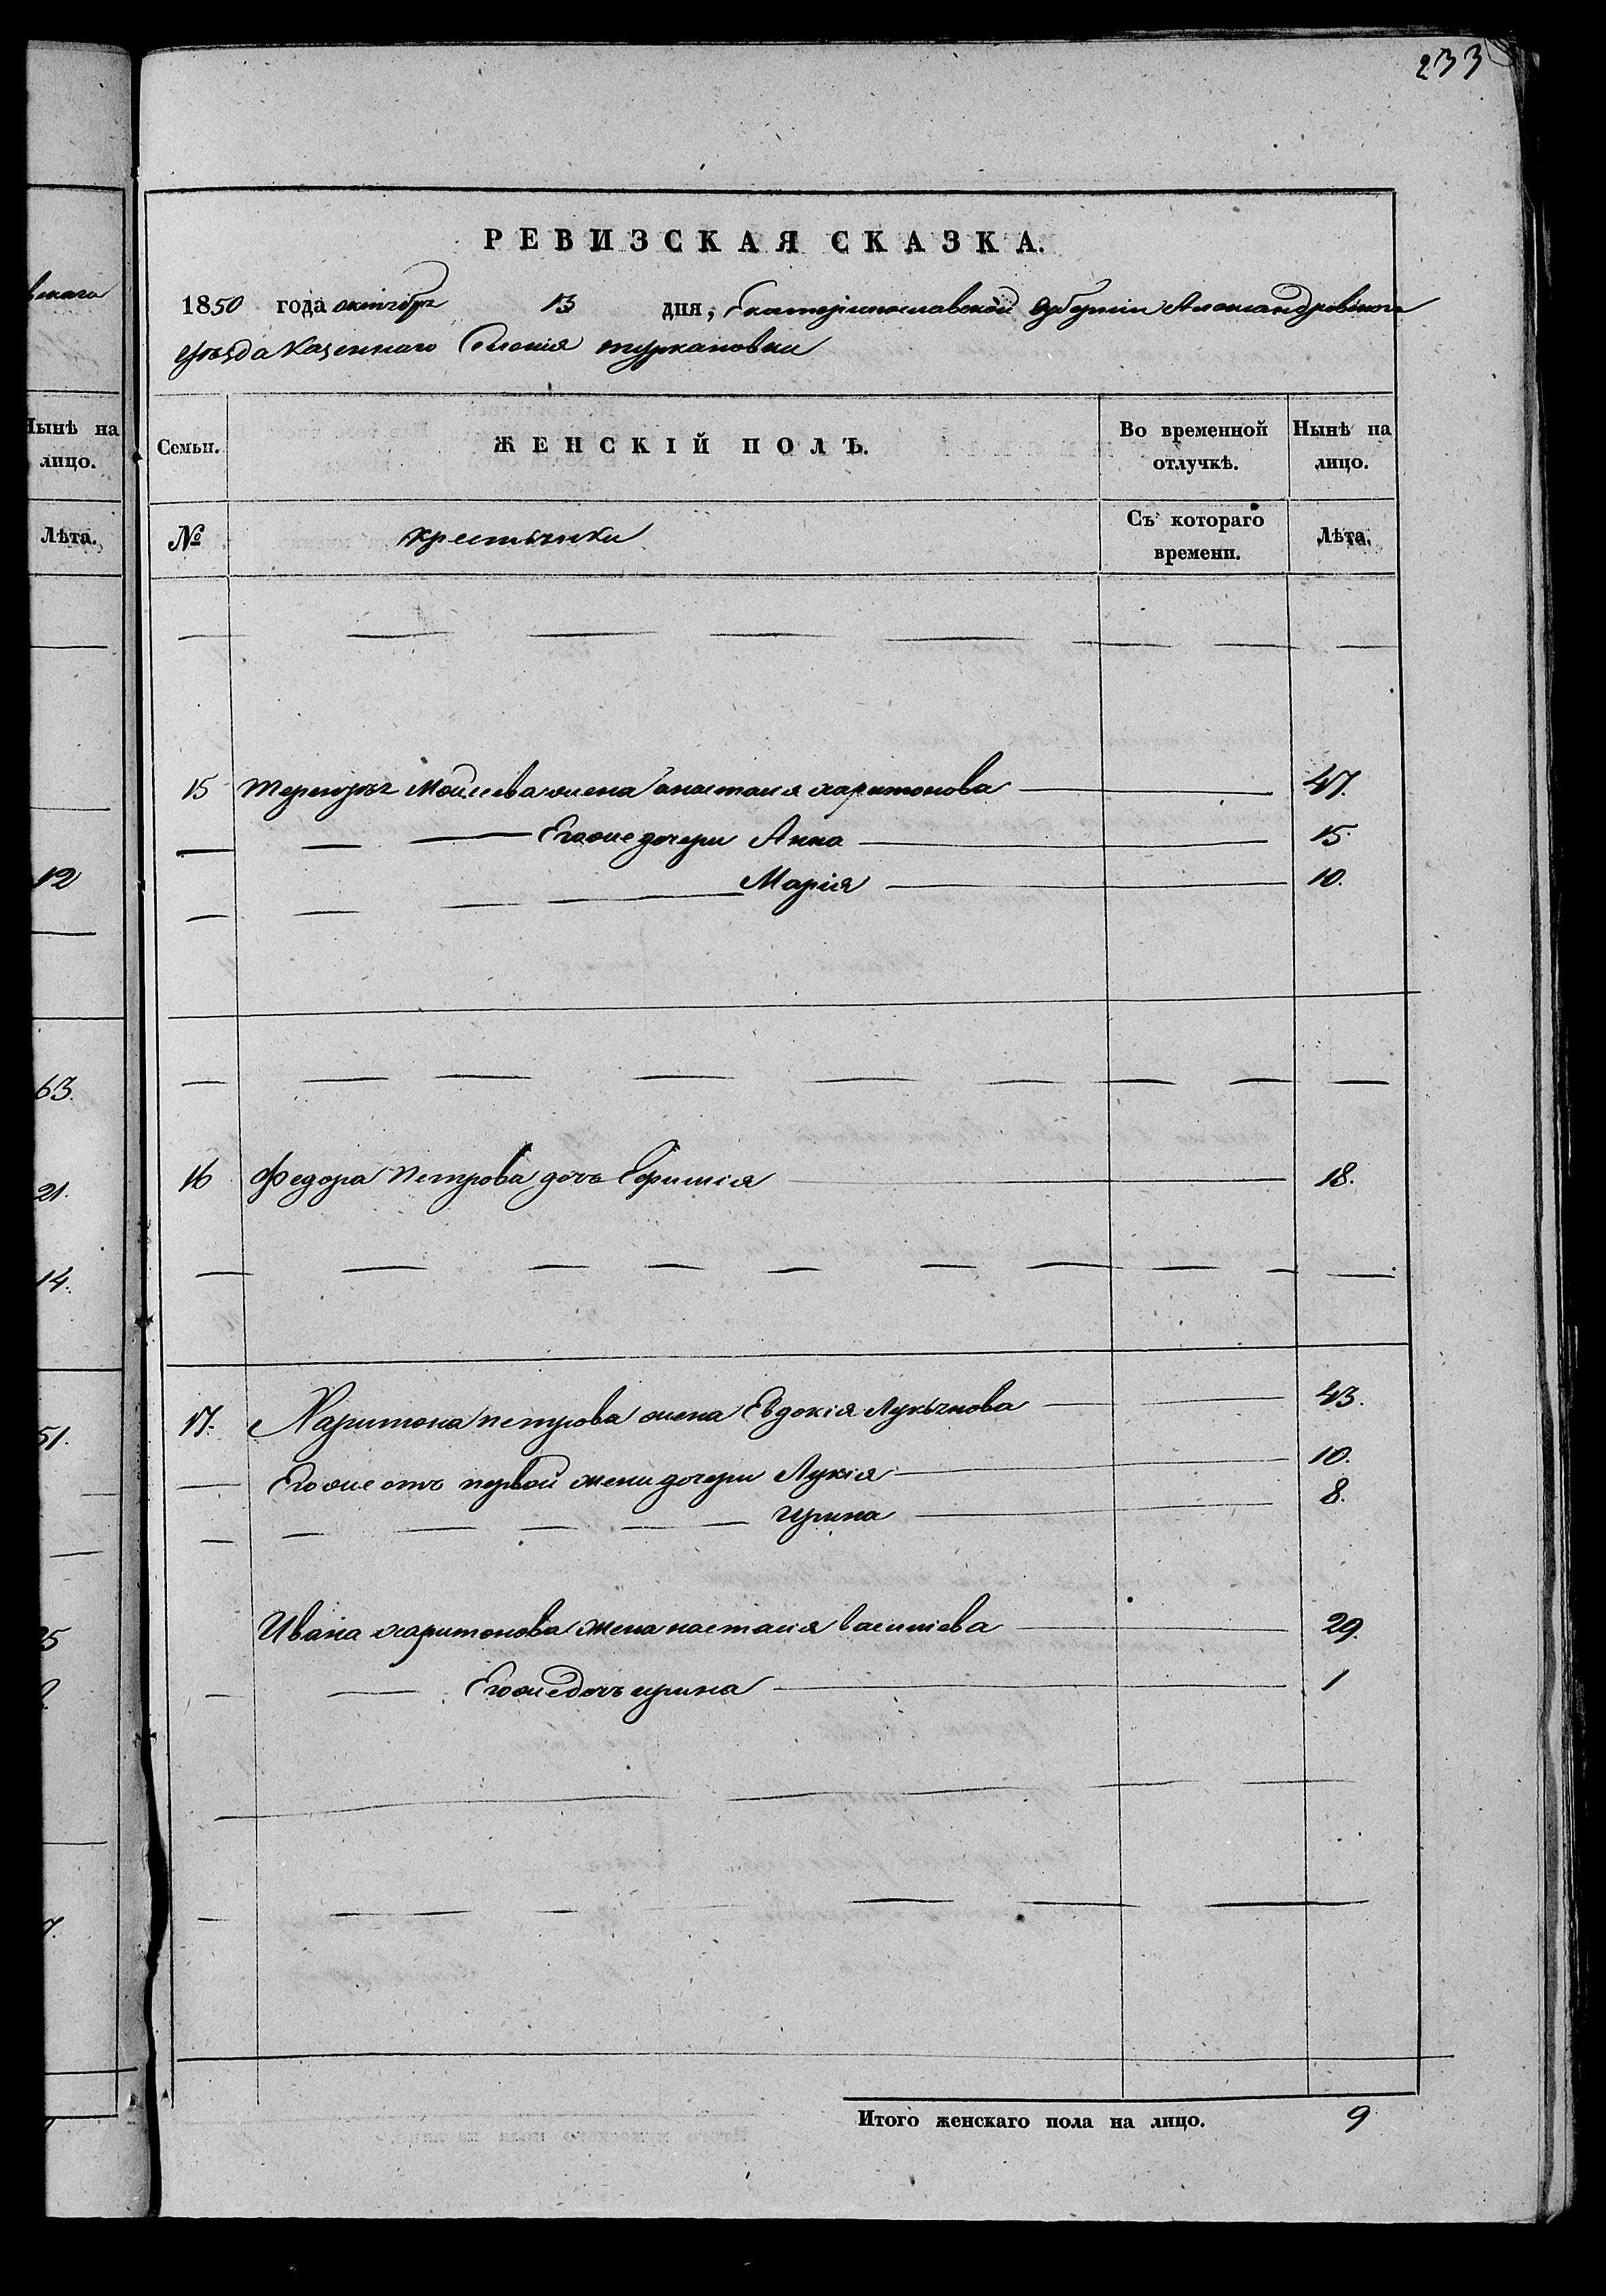 233
РЕВИЗСКАЯ СКАЗКА.
1850 года октября 13 дня, Екатеринославской Губернии Александровскаго
уѣзда Казеннаго Селенія туркановки
Семьи. ЖЕНСКІЙ ПОЛЪ. Во временной отлучкѣ. Нынѣ на лицо.
№ крестьянки Съ котораго времени. Лѣта.
15 Моисеева жена анастасия харитонова 47.
Егоже дочери Анна 15.
Марія 10.
16 Федора Петрова дочь Ефимія 18.
17. Харитона петрова жена Евдокія Лукьянова 43.
Егоже отъ первой жени дочери Лукія 10.
Ирина 8.
Ивана харитонова жена настасия василиева 29.
Егоже дочь ирина 1
Итого женскаго пола на лицо. 9
вскаго
Нынѣ на
лицо.
Лѣта.
12
63.
21.
14.
51.